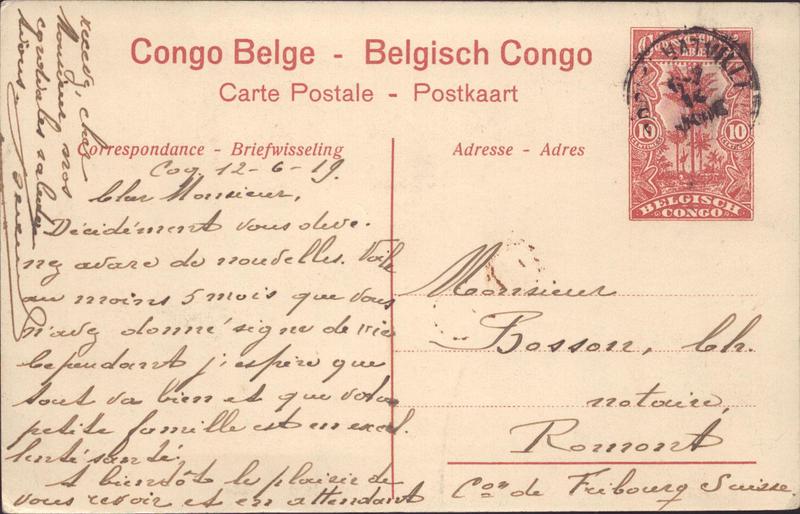 Congo Belge - Belgisch Congo
Carte Postale - Postkaart
Correspondance - Briefwisseling
Adresse - Adres
10 10
BELGISCH
CONGO
Coq. 12-6-19.
Cher Monsieur,
Décidément vous deve-
nez avare de nouvelles. Voilà
au moins 5 mois que vous
n'avez donné signe de vie
Cependant j'espère que
tout va bien et que votre
petite famille est en excel-
lente santé.
A bientôt le plaisir de
vous revoir et en attendant
recevez, cher
Monsieur nos
cordiales saluta-
tions.
Monsieur
Bosson, Ch.
notaire,
Romont
Con de Fribourg Suisse.